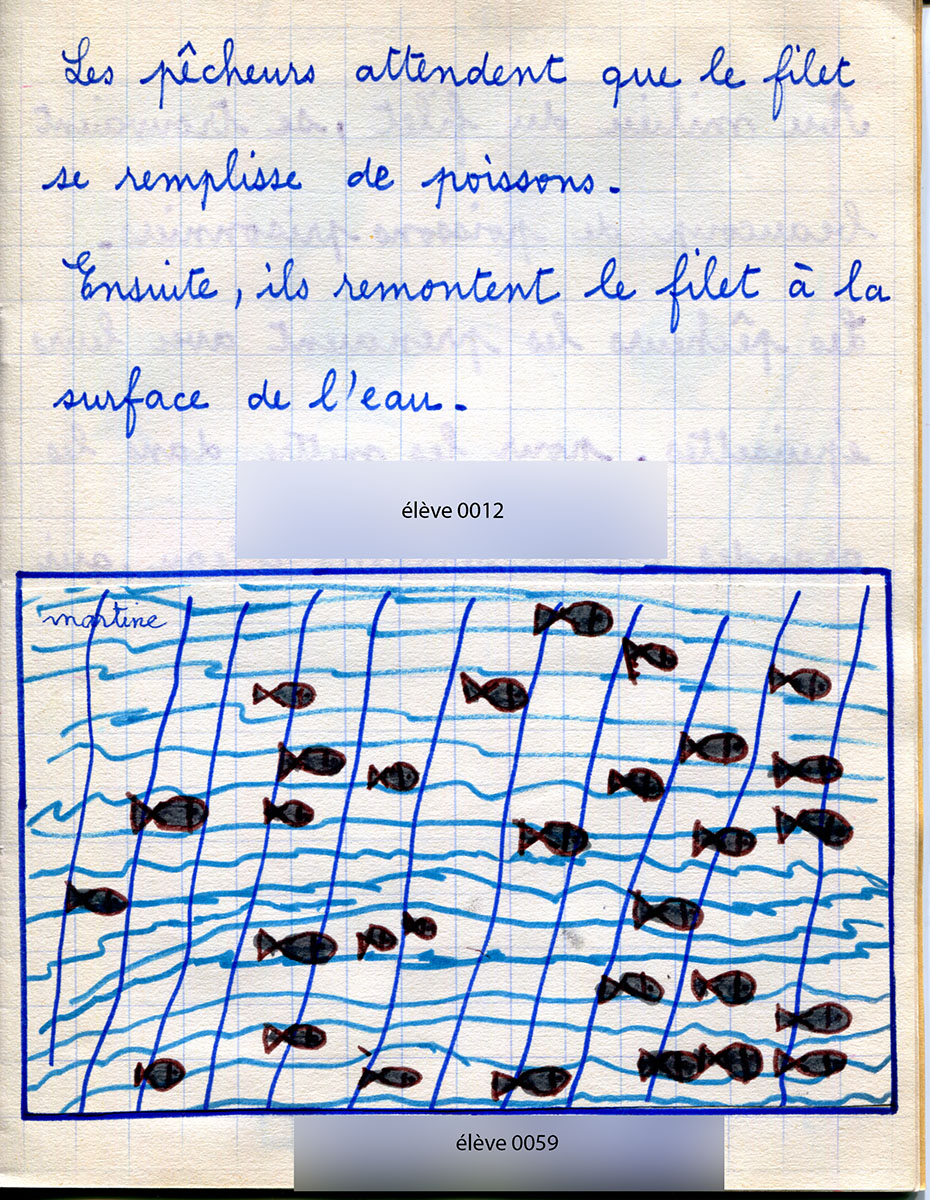 Les pêcheurs attendent que le filet
se remplisse de poissons.
Ensuite, ils remontent le filet à la
surface de l'eau.
élève 0012
martine
élève 0059